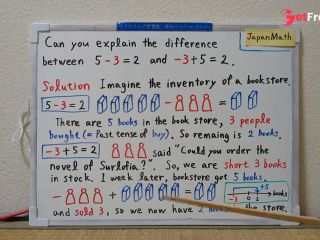 GetFre
JapanMath
Can you explain the difference
between 5-3=2 and -3+5=2.
Solution Imagine the inventory of a bookstore.
5-3=2
There are 5 books in the book store, 3 people
bought (= Past tense of buy). So remaing is 2 books.
-3+5=2 said "Could you order the
novel of Surlofia?" So, we are short 3 books
in stock. 1 week later, bookstore got 5 books.
- + = +5 books
-3 0 2
and sold 3, so we now have 2 the store.